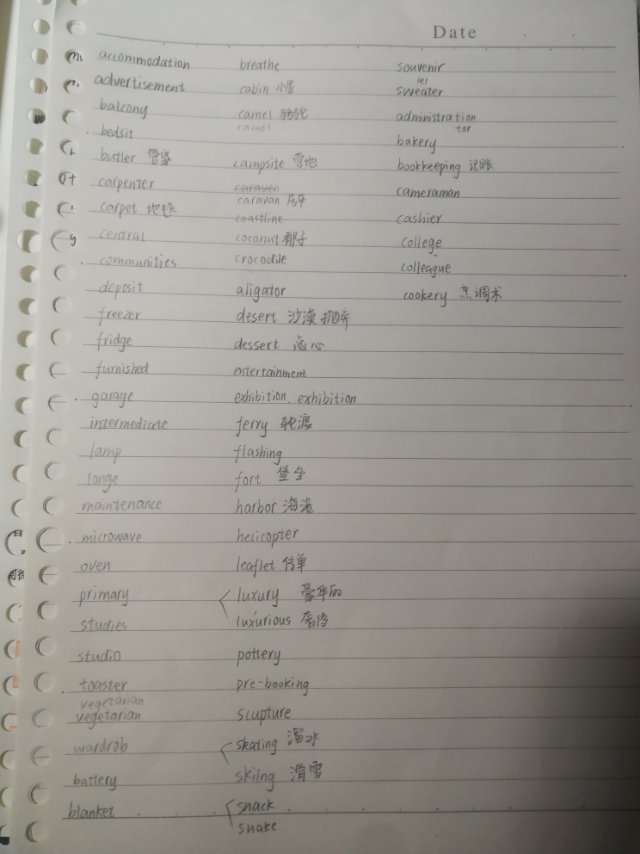 Date
accommodation
advertisement
balcony
bedsit
butler 管家
carpenter
carpet 地毯
central
communities
deposit
freezer
fridge
furnished
garage
intermedicete
lamp
longe
maintenance
microwave
oven
primary
studies
studio
toaster
vegetarian
vegetarian
wardrob
battery
blanket
breathe
cabin 小屋
camel 骆驼
camel
campsite 营地
caravan 房车
coastline
coconut 椰子
crocodile
aligator
desert 沙漠 抛弃
dessert 点心
entertainment
exhibition exhibition
ferry 轮渡
flashing
fort 堡垒
harbor 海港
helicopter
leaflet 传单
luxury 豪华的
luxurious 奢侈
pottery
pre-booking
scupture
skating 溜冰
skiing 滑雪
snack
snake
souvenir
sweater
administration
tor
bakery
bookkeeping 记账
cameraman
cashier
college
colleague
cookery 烹调术